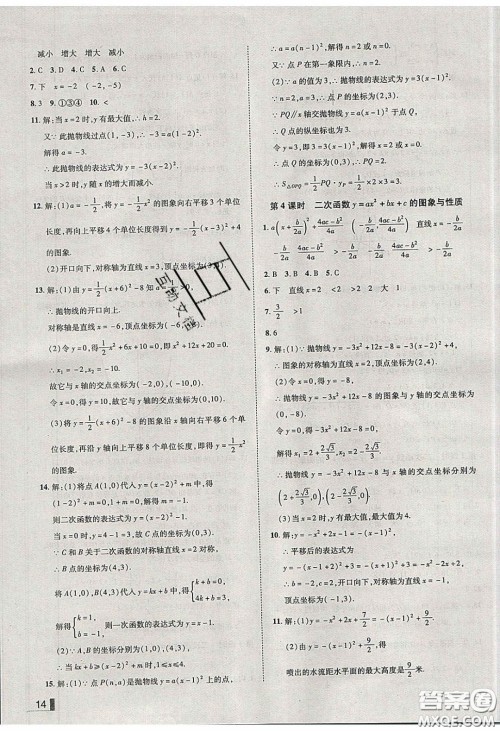 减小 增大 增大 减小
2. C 3. D 4. C 5. A 6. C
7. 下 x=-2 (-2,-5)
8. 3 9. ①③④ 10. <
11. 解:当x=2时,y有最大值,∴h=2.
又∵此抛物线过点(1,-3),∴a=-3.
解得a=-3.
∴此抛物线的表达式为y=-3(x-2)².
当x>2时,y随x的增大而减小.
12. 解:(1)a=-1/2,将y=-1/2x²的图象向右平移3个单位
长度,再向上平移4个单位长度得到y=-1/2(x-3)²+4
的图象.
(2)开口向下,对称轴为直线x=3,顶点坐标为(3,4).
13. 解:(1)由y=1/2(x+6)²-8知a=1/2>0,
∴抛物线的开口向上.
对称轴是直线x=-6,顶点坐标为(-6,-8).
(2)令y=0,得1/2x²+6x+10=0,
∴x₁=-2,x₂=-10.
故它与x轴的交点坐标为(-10,0)和(-2,0).
令x=0,得y=10.
故它与y轴的交点坐标为(0,10).
(3)将y=1/2(x+6)²-8的图象沿x轴向右平移6个单
位长度,再向上平移8个单位长度,可得到y=1/2x²
的图象.
14. 解:(1)将点A(1,0)代入y=(x-2)²+m中,得
(1-2)²+m=0,解得m=-1.
则二次函数的表达式为y=(x-2)²-1.
当x=0时,y=4-1=3.
故点C的坐标为(0,3).
∵C和B关于二次函数的对称轴直线x=2对称,
∴点B的坐标为(4,3).
将A(1,0),B(4,3)代入y=kx+b中,得{k+b=0, 4k+b=3,
解得{k=1, b=-1. 则一次函数的表达式为y=x-1.
(2)∵A,B的坐标为A(1,0),B(4,3),
∴当kx+b≥(x-2)²+m时,1≤x≤4.
15. 解:(1)∵点P(n,a)是抛物线y=a(x-1)²上的点,
14
∴a=a(n-1)²,解得n=2或n=0.
又∵点P在第一象限内,∴n=2.
(2)∵a的值为3,∴抛物线的表达式为y=3(x-1)²,
∴点P的坐标为(2,3).
∵PQ∥x轴交抛物线y=a(x-1)²于点Q,
∴Q点的纵坐标也为3.
∴3=3(x-1)²,解得x=2或0.
∴点Q的坐标为(0,3),∴PQ=2.
第4课时 二次函数y=ax²+bx+c的图象与性质
2. B 3. B 4. A 5. C
6. 下 直线x=2 <2 >2 大 1
7. 3/2 >
8. 6
9. 解:(1)∵抛物线y=-3x²+12x-8,
∴图象的对称轴为直线x=2,顶点坐标为(2,4).
(2)令x=0,得y=-8.
∴抛物线y=-3x²+12x-8的图象与y轴的交点坐标
为(0,-8).
令y=0,得-3x²+12x-8=0,
解得x₁=2+2√3/3,x₂=2-2√3/3.
∴抛物线y=-3x²+12x-8与x轴的交点坐标分别为
(2+2√3/3,0),(2-2√3/3,0).
(3)∵a=-3<0,
∴当x=2时,y有最大值,最大值为4.
∴平移后的表达式为
y=-(x+1-2)²+2+2=-(x-1)²+4.
∴a=-1<0,开口向下,对称轴为直线x=1,
顶点坐标为(1,4).
11. 解:(1)∵y=-x²+2x+7/2=-(x-1)²+9/2,
∴由y=-(x-1)²+9/2得,
喷出的水流距水平面的最大高度是9/2米.
答案圈
MXQE.COM